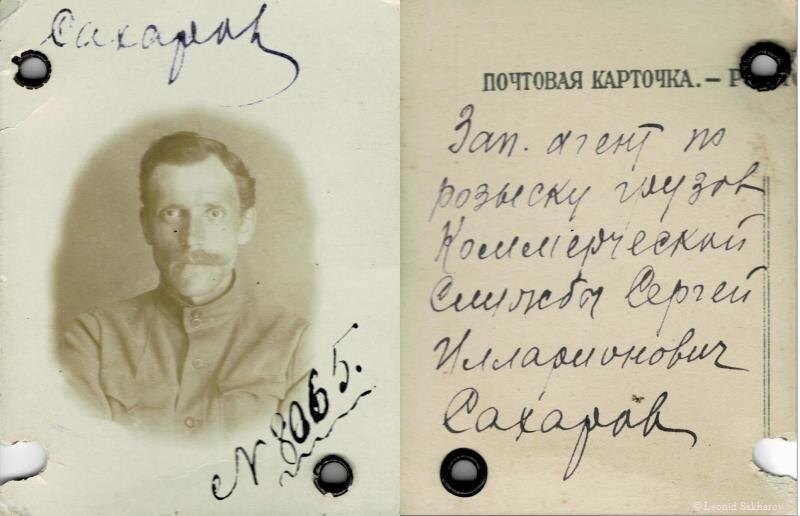 Сахаров
N 8065.
ПОЧТОВАЯ КАРТОЧКА.—
Зап. агент по
розыску грузов
Коммерческой
Службы Сергей
Илларионович
Сахаров
© Leonid Sakharov